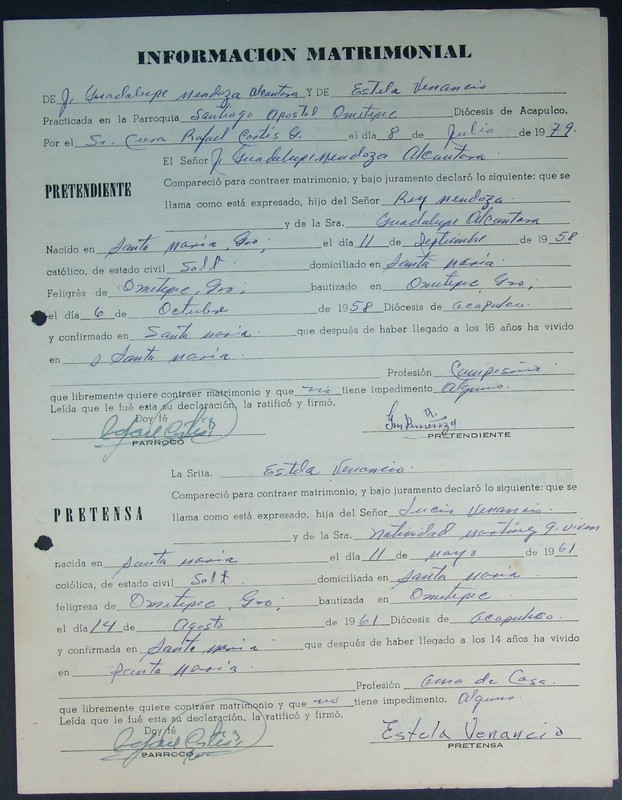 INFORMACION MATRIMONIAL
DE J. Guadalupe Mendoza Alcantara Y DE Estela Venancio
Practicada en la Parroquia Santiago Apostol Ometepec Diócesis de Acapulco.
Por el Sr. Cura Rafael Cortis G. el día 8 de Julio de 1979.
El Señor J. Guadalupe Mendoza Alcantara
PRETENDIENTE
Compareció para contraer matrimonio, y bajo juramento declaró lo siguiente: que se
llama como está expresado, hijo del Señor Rey Mendoza.
y de la Sra. Guadalupe Alcantara
Nacido en Santa Maria, Gro; el día 11 de Septiembre de 1958
católico, de estado civil Solt. domiciliado en Santa Maria.
Feligrés de Ometepec, Gro; bautizado en Ometepec, Gro;
el día 6 de Octubre de 1958 Diócesis de Acapulco.
y confirmado en Santa Maria. que después de haber llegado a los 16 años ha vivido
en Santa Maria.
Profesión Campesino.
que libremente quiere contraer matrimonio y que no tiene impedimento alguno.
Leída que le fué esta su declaración, la ratificó y firmó.
Doy fé
PARROCO
PRETENDIENTE
La Srita. Estela Venancio.
PRETENSA
Compareció para contraer matrimonio, y bajo juramento declaró lo siguiente: que se
llama como está expresado, hija del Señor Lucio Venancio.
y de la Sra. Natividad Martinez q. viven
nacida en Santa Maria el día 11 de Mayo de 1961
católica, de estado civil Solt. domiciliada en Santa Maria.
feligresa de Ometepec, Gro; bautizada en Ometepec.
el día 14 de Agosto de 1961 Diócesis de Acapulco.
y confirmada en Santa Maria que después de haber llegado a los 14 años ha vivido
en Santa Maria.
Profesión ama de Casa.
que libremente quiere contraer matrimonio y que no tiene impedimento. alguno.
Leída que le fué esta su declaración, la ratificó y firmó.
Doy fé
PARROCO
Estela Venancio
PRETENSA